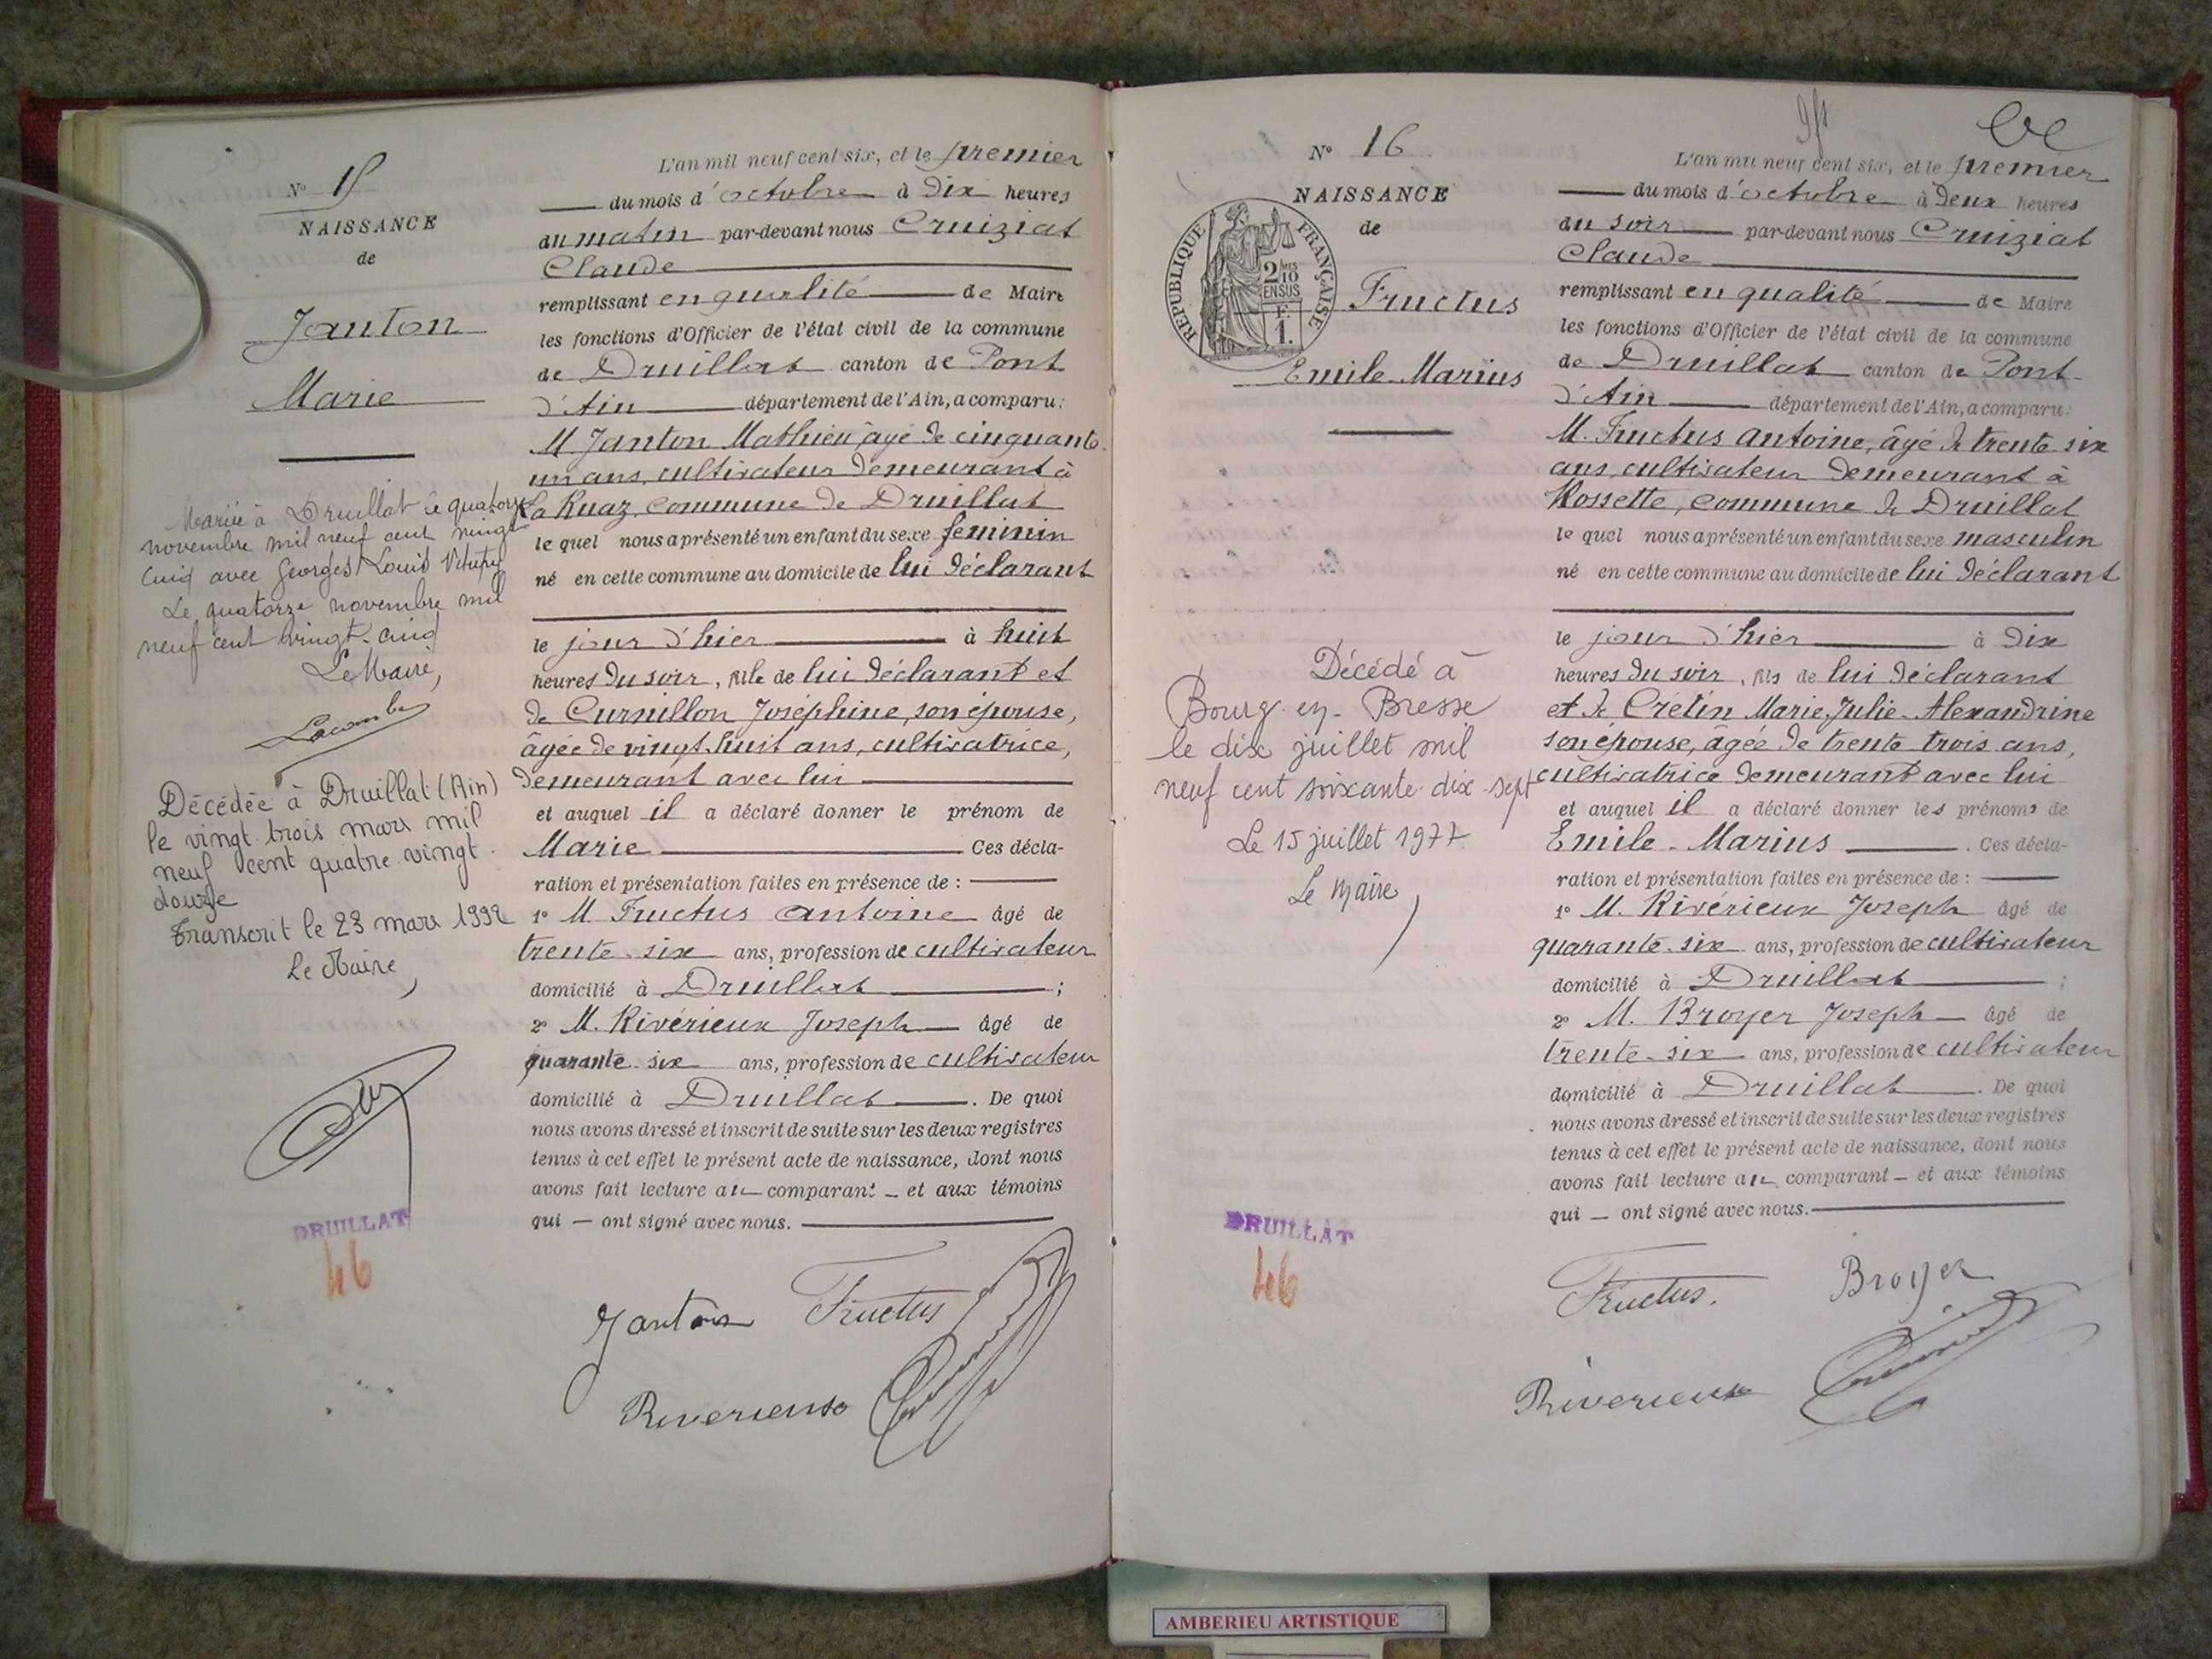 N° 15
NAISSANCE
de
Janton
Marie
Mariée à Druillat le quatorze
novembre mil neuf cent vingt
cinq avec Georges Louis
Le quatorze novembre mil
neuf cent vingt-cinq
Le Maire,
Lacombe
Décédée à Druillat (Ain)
le vingt trois mars mil
neuf cent quatre vingt
douze
Transcrit le 23 mars 1992
Le Maire,
DRUILLAT
46
L'an mil neuf cent six, et le premier
du mois d'octobre à dix heures
du matin par-devant nous Cruiziat
Claude
remplissant en qualité de Maire
les fonctions d'Officier de l'état civil de la commune
de Druillat canton de Pont
d'Ain département de l'Ain, a comparu:
M. Janton Mathieu, âgé de cinquante
un ans, cultivateur demeurant à
La Ruaz, commune de Druillat
le quel nous a présenté un enfant du sexe féminin
né en cette commune au domicile de lui déclarant
le jour d'hier à huit
heures du soir, fille de lui déclarant et
de Curnillon Joséphine, son épouse,
âgée de vingt-huit ans, cultivatrice,
demeurant avec lui
et auquel il a déclaré donner le prénom de
Marie Ces décla-
ration et présentation faites en présence de :
1° M Fructus Antoine âgé de
trente-six ans, profession de cultivateur
domicilié à Druillat ;
2° M. Rivérieux Joseph âgé de
quarante-six ans, profession de cultivateur
domicilié à Druillat. De quoi
nous avons dressé et inscrit de suite sur les deux registres
tenus à cet effet le présent acte de naissance, dont nous
avons fait lecture au comparant – et aux témoins
qui – ont signé avec nous.
Janton Fructus
Riverieux
N° 16
NAISSANCE
de
REPUBLIQUE FRANÇAISE
2/10
EN SUS
F.
1.
Fructus
Emile-Marius
Décédé à
Bourg-en-Bresse
le dix juillet mil
neuf cent soixante-dix-sept
Le 15 juillet 1977.
Le Maire,
DRUILLAT
46
L'an mil neuf cent six, et le premier
du mois d'octobre à deux heures
du soir par-devant nous Cruiziat
Claude
remplissant en qualité de Maire
les fonctions d'Officier de l'état civil de la commune
de Druillat canton de Pont-
d'Ain département de l'Ain, a comparu:
M. Fructus Antoine, âgé de trente-six
ans, cultivateur demeurant à
Rossette, commune de Druillat
le quel nous a présenté un enfant du sexe masculin
né en cette commune au domicile de lui déclarant
le jour d'hier à dix
heures du soir, fils de lui déclarant
et de Crétin Marie-Julie-Alexandrine
son épouse, âgée de trente-trois ans,
cultivatrice demeurant avec lui
et auquel il a déclaré donner les prénoms de
Emile-Marius . Ces décla-
ration et présentation faites en présence de :
1° M. Rivérieux Joseph âgé de
quarante-six ans, profession de cultivateur
domicilié à Druillat ;
2° M. Broyer Joseph – âgé de
trente-six ans, profession de cultivateur
domicilié à Druillat. De quoi
nous avons dressé et inscrit de suite sur les deux registres
tenus à cet effet le présent acte de naissance, dont nous
avons fait lecture au comparant – et aux témoins
qui – ont signé avec nous.
Fructus. Broyer
Riverieux
AMBERIEU ARTISTIQUE